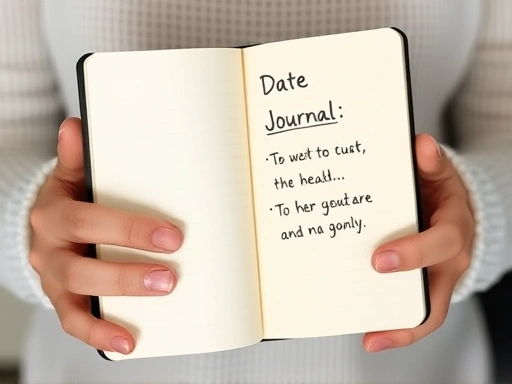 Date
Journal:
·To wait to cust,
the heald...
·To her goutare
and na gonly.